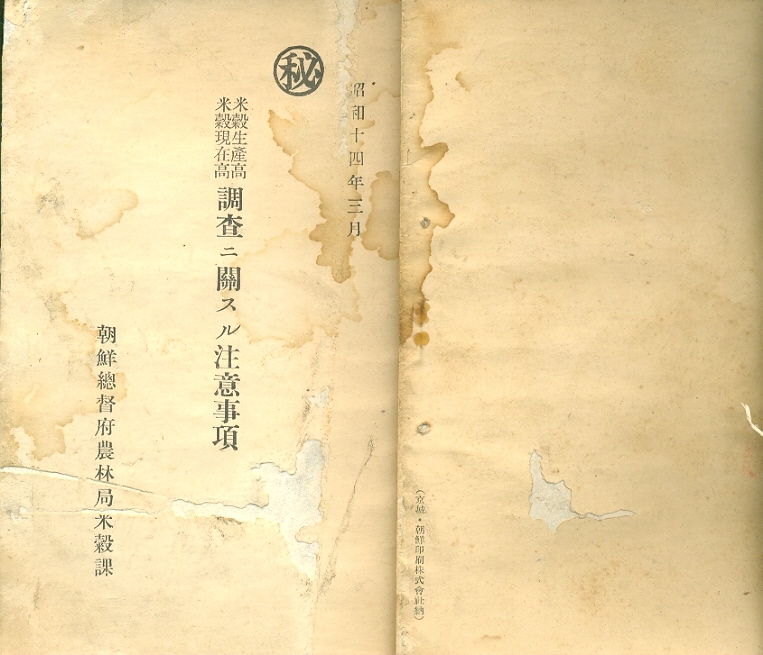 ㊙
昭和十四年三月
米穀生產高
米穀現在高
調查ニ關スル注意事項
朝鮮總督府農林局米穀課
(京城・朝鮮印刷株式會社納)